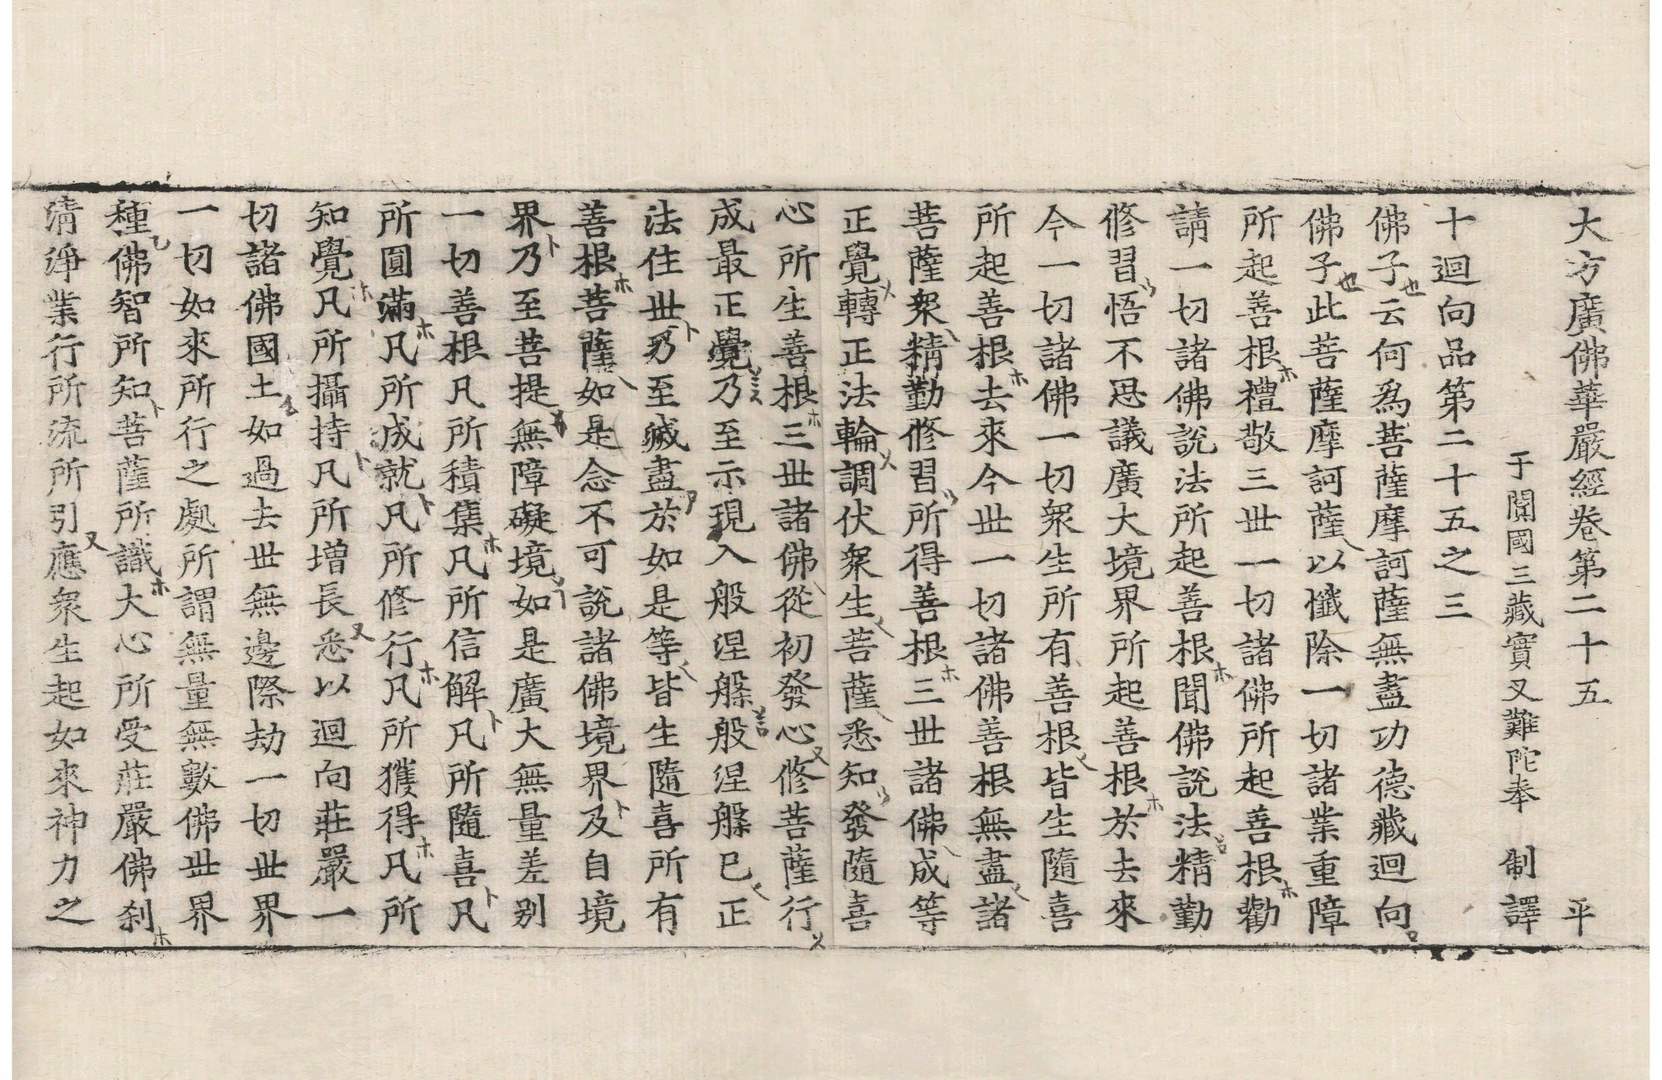 大方廣佛華嚴經卷第二十五 平
于闐國三藏實叉難陀奉 制譯
十迴向品第二十五之三
佛子云何爲菩薩摩訶薩無盡功德藏迴向
佛子此菩薩摩訶薩以懺除一切諸業重障
所起善根禮敬三世一切諸佛所起善根勸
請一切諸佛說法所起善根聞佛說法精勤
修習悟不思議廣大境界所起善根於去來
今一切諸佛一切衆生所有善根皆生隨喜
所起善根去來今世一切諸佛善根無盡諸
菩薩衆精勤修習所得善根三世諸佛成等
正覺轉正法輪調伏衆生菩薩悉知發隨喜
心所生善根三世諸佛從初發心修菩薩行
成最正覺乃至示現入般涅槃般涅槃已正
法住世乃至滅盡於如是等皆生隨喜所有
善根菩薩如是念不可說諸佛境界及自境
界乃至菩提無障礙境如是廣大無量差別
一切善根凡所積集凡所信解凡所隨喜凡
所圓滿凡所成就凡所修行凡所獲得凡所
知覺凡所攝持凡所增長悉以迴向莊嚴一
切諸佛國土如過去世無邊際劫一切世界
一切如來所行之處所謂無量無數佛世界
種佛智所知菩薩所識大心所受莊嚴佛刹
清淨業行所流所引應衆生起如來神力之